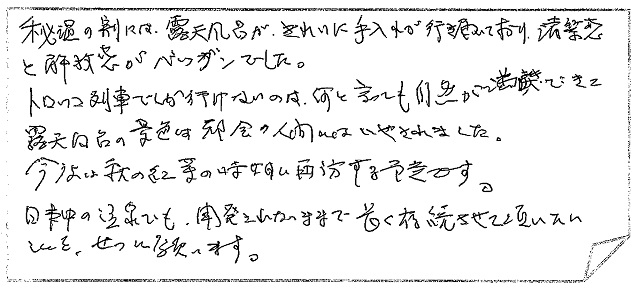 秘湯の割には、露天風呂が、きれいに手入れが行き届いており、清潔感
と解放感がバツグンでした。
トロッコ列車でしか行けないのは、何と言っても自然が満喫できて
露天風呂の景色は都会の人間にはいやされました。
今度は秋の紅葉の時期に再訪する予定です。
日本中の温泉でも、開発されないままで長く存続させて頂いたい
ことを、せつに願います。